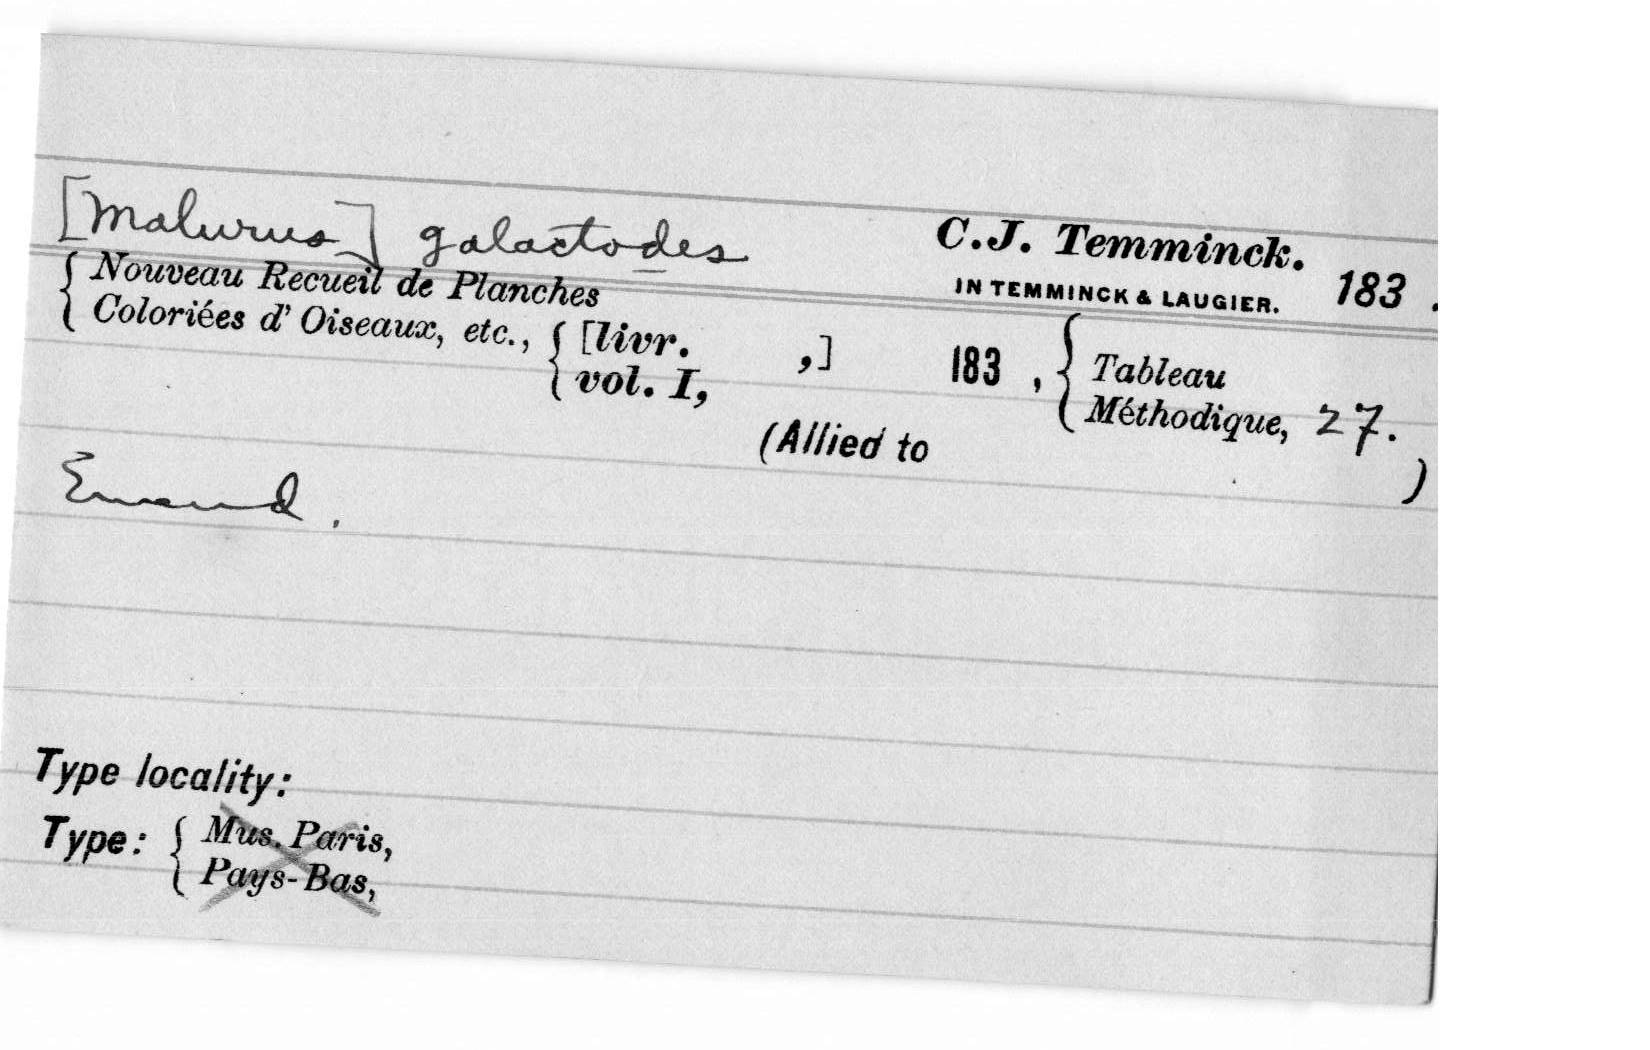 [Malurus] galactodes C.J. Temminck. 183 .
IN TEMMINCK & LAUGIER.
{ Nouveau Recueil de Planches
Coloriées d' Oiseaux, etc., { [livr. ,] 183 , { Tableau
vol. I, Méthodique, 27.
(Allied to )
Emend.
Type locality:
Type: { Mus. Paris,
Pays-Bas,